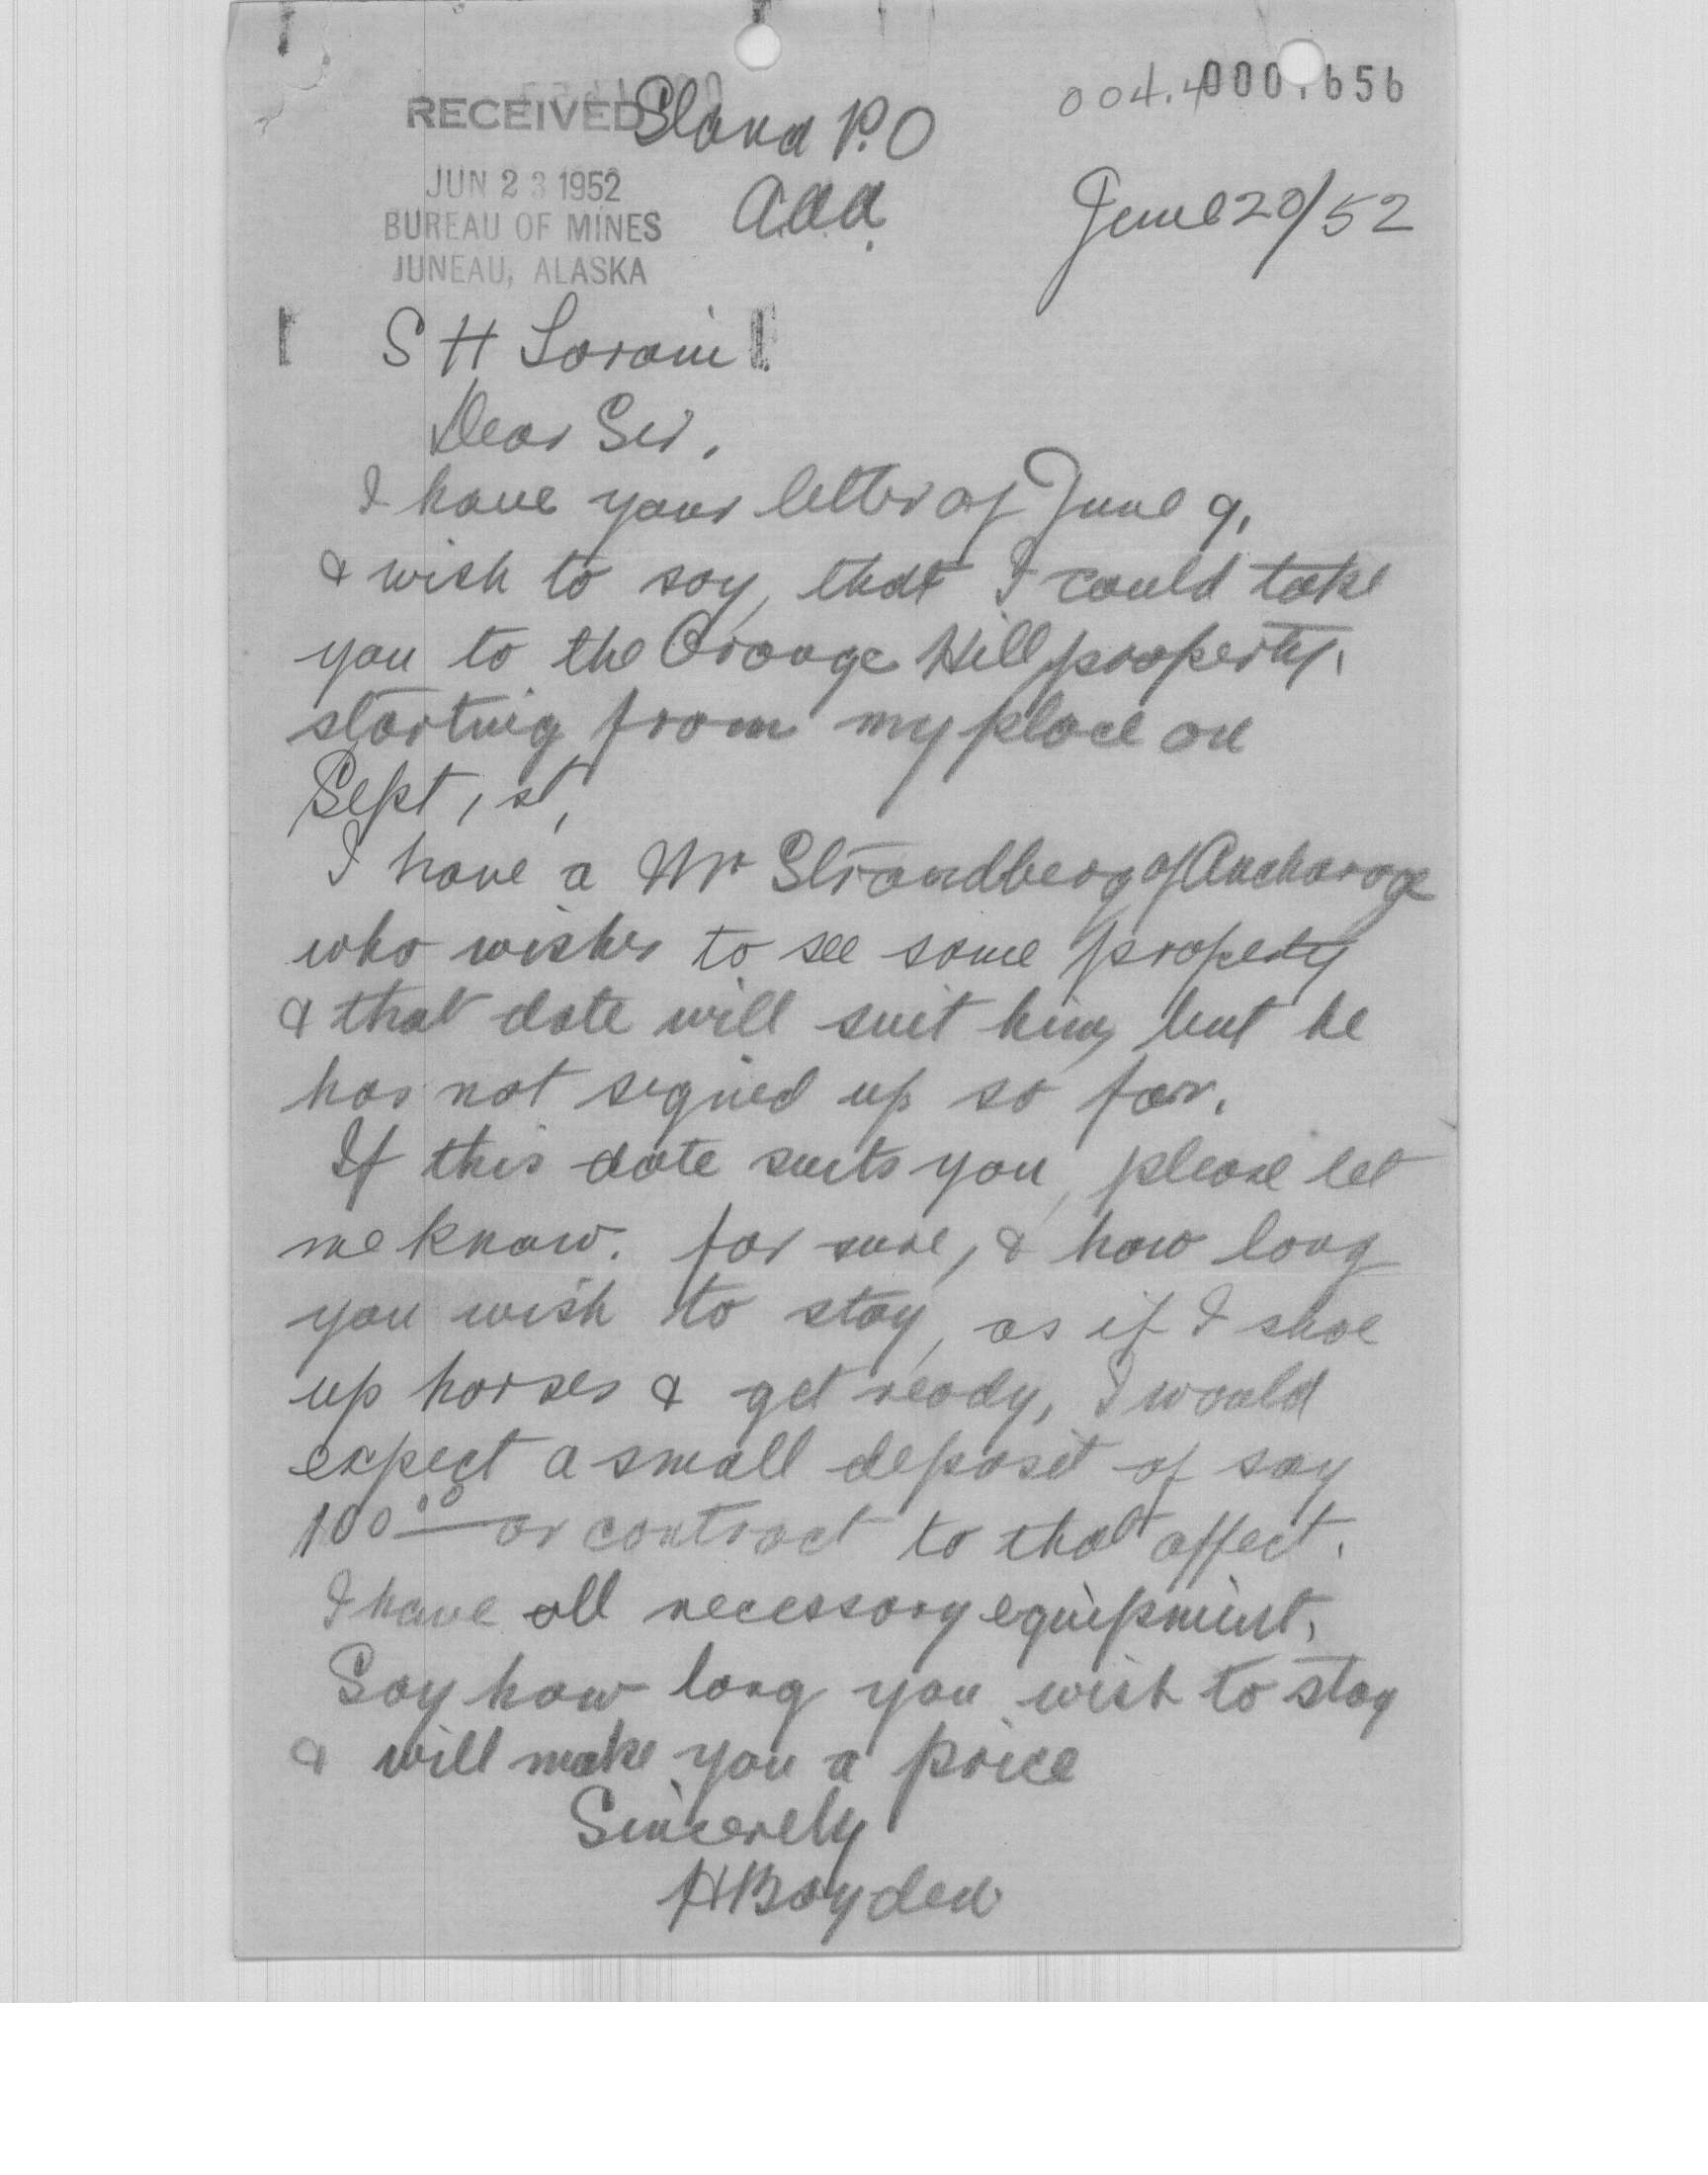 004.4000.656
RECEIVED Slana P.O
JUN 23 1952
BUREAU OF MINES
JUNEAU, ALASKA
a.a.a.
June 20/52
S H Lorain
Dear Sir,
I have your letter of June 9,
& wish to say, that I could take
you to the Orange Hill property,
starting from my place on
Sept, 1st,
I have a Mr Strandberg of Anchorage
who wishes to see some property
& that date will suit him, but he
has not signed up so far.
If this date suits you, please let
me know. for sure, & how long
you wish to stay, as if I shoe
up horses & get ready, I would
expect a small deposit of say
100.00 or contract to that affect.
I have all necessary equipment,
Say how long you wish to stay
& will make you a price
Sincerely
H Boyden